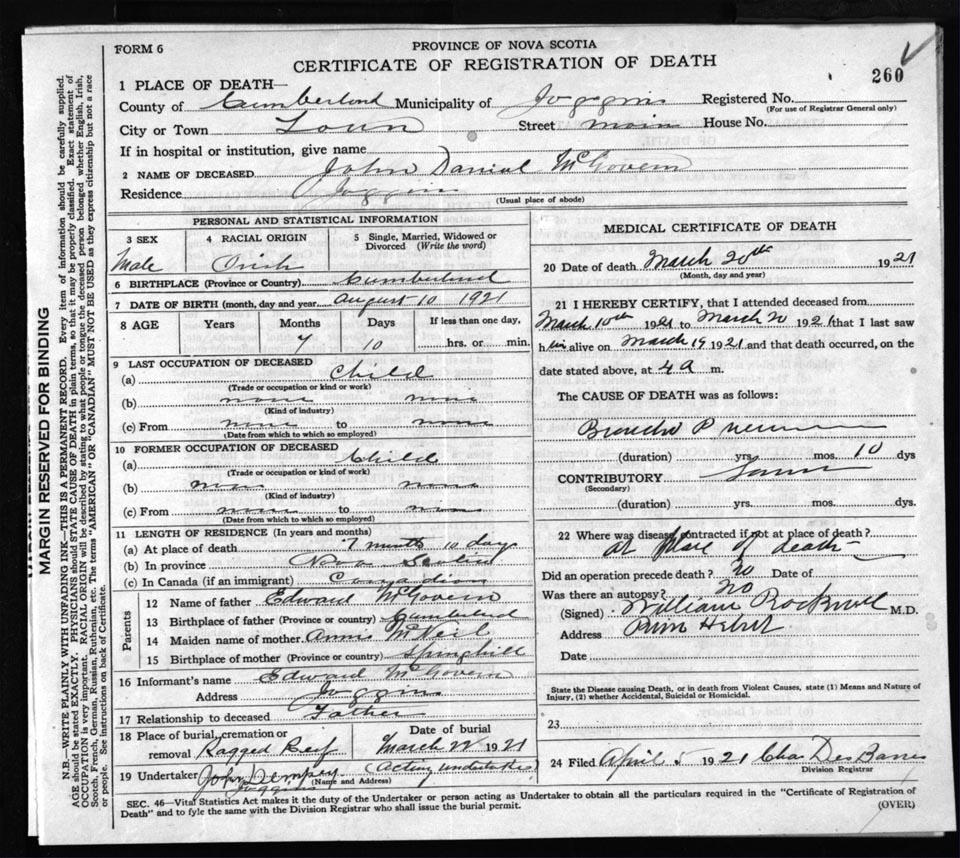 FORM 6
PROVINCE OF NOVA SCOTIA
CERTIFICATE OF REGISTRATION OF DEATH
260
1 PLACE OF DEATH—
County of Cumberland Municipality of Joggins Registered No.
(For use of Registrar General only)
City or Town Town Street main House No.
If in hospital or institution, give name
2 NAME OF DECEASED John Daniel McGovern
Residence Joggins
(Usual place of abode)
PERSONAL AND STATISTICAL INFORMATION
3 SEX
Male
4 RACIAL ORIGIN
Irish
5 Single, Married, Widowed or Divorced (Write the word)
6 BIRTHPLACE (Province or Country) Cumberland
7 DATE OF BIRTH (month, day and year) August 10 1921
8 AGE Years Months Days If less than one day,
7 10 hrs. or min.
9 LAST OCCUPATION OF DECEASED
(a) Child
(Trade or occupation or kind or work)
(b) none none
(Kind of industry)
(c) From none none
(Date from which to which so employed)
10 FORMER OCCUPATION OF DECEASED
(a) Child
(Trade or occupation or kind of work)
(b) none none
(Kind of industry)
(c) From none none
(Date from which to which so employed)
11 LENGTH OF RESIDENCE (In years and months)
(a) At place of death 7 months 10 days
(b) In province Nova Scotia
(c) In Canada (if an immigrant) Canadian
Parents
12 Name of father Edward McGovern
13 Birthplace of father (Province or country) Cumberland
14 Maiden name of mother Annie McNeil
15 Birthplace of mother (Province or country) Springhill
16 Informant's name Edward McGovern
Address Joggins
17 Relationship to deceased Father
18 Place of burial, cremation or removal Ragged Reif
Date of burial
March 22 1921
19 Undertaker John Dempsey (Acting undertaker)
(Name and Address)
Joggins
MEDICAL CERTIFICATE OF DEATH
20 Date of death March 20th 1921
(Month, day and year)
21 I HEREBY CERTIFY, that I attended deceased from
March 10th 1921 to March 20 1921 that I last saw
him alive on March 19 1921 and that death occurred, on the
date stated above, at 4 a m.
The CAUSE OF DEATH was as follows:
Broncho Pneumonia
(duration) yrs. mos. 10 dys
CONTRIBUTORY
(Secondary)
(duration) yrs. mos. dys.
22 Where was disease contracted if not at place of death?
at place of death
Did an operation precede death? no Date of
Was there an autopsy? no
(Signed) William Rockwell M.D.
Address River Hebert
Date
State the Disease causing Death, or in death from Violent Causes, state (1) Means and Nature of
Injury, (2) whether Accidental, Suicidal or Homicidal.
23
24 Filed April 1921 Chas Des Barres
Division Registrar
SEC. 46—Vital Statistics Act makes it the duty of the Undertaker or person acting as Undertaker to obtain all the particulars required in the "Certificate of Registration of
Death" and to fyle the same with the Division Registrar who shall issue the burial permit.
(OVER)
MARGIN RESERVED FOR BINDING
N.B.—WRITE PLAINLY WITH UNFADING INK—THIS IS A PERMANENT RECORD. Every item of information should be carefully supplied.
AGE should be stated EXACTLY. PHYSICIANS should STATE CAUSE OF DEATH in plain terms, so that it may be properly classified. Exact statement of
OCCUPATION is very important. RACIAL ORIGIN will be described by stating to what people or tongue the deceased person belonged whether English, Irish,
Scotch, French, German, Russian, Ruthenian, etc. The terms "AMERICAN" OR "CANADIAN" MUST NOT BE USED as they express citizenship but not a race
or people. See instructions on back of Certificate.